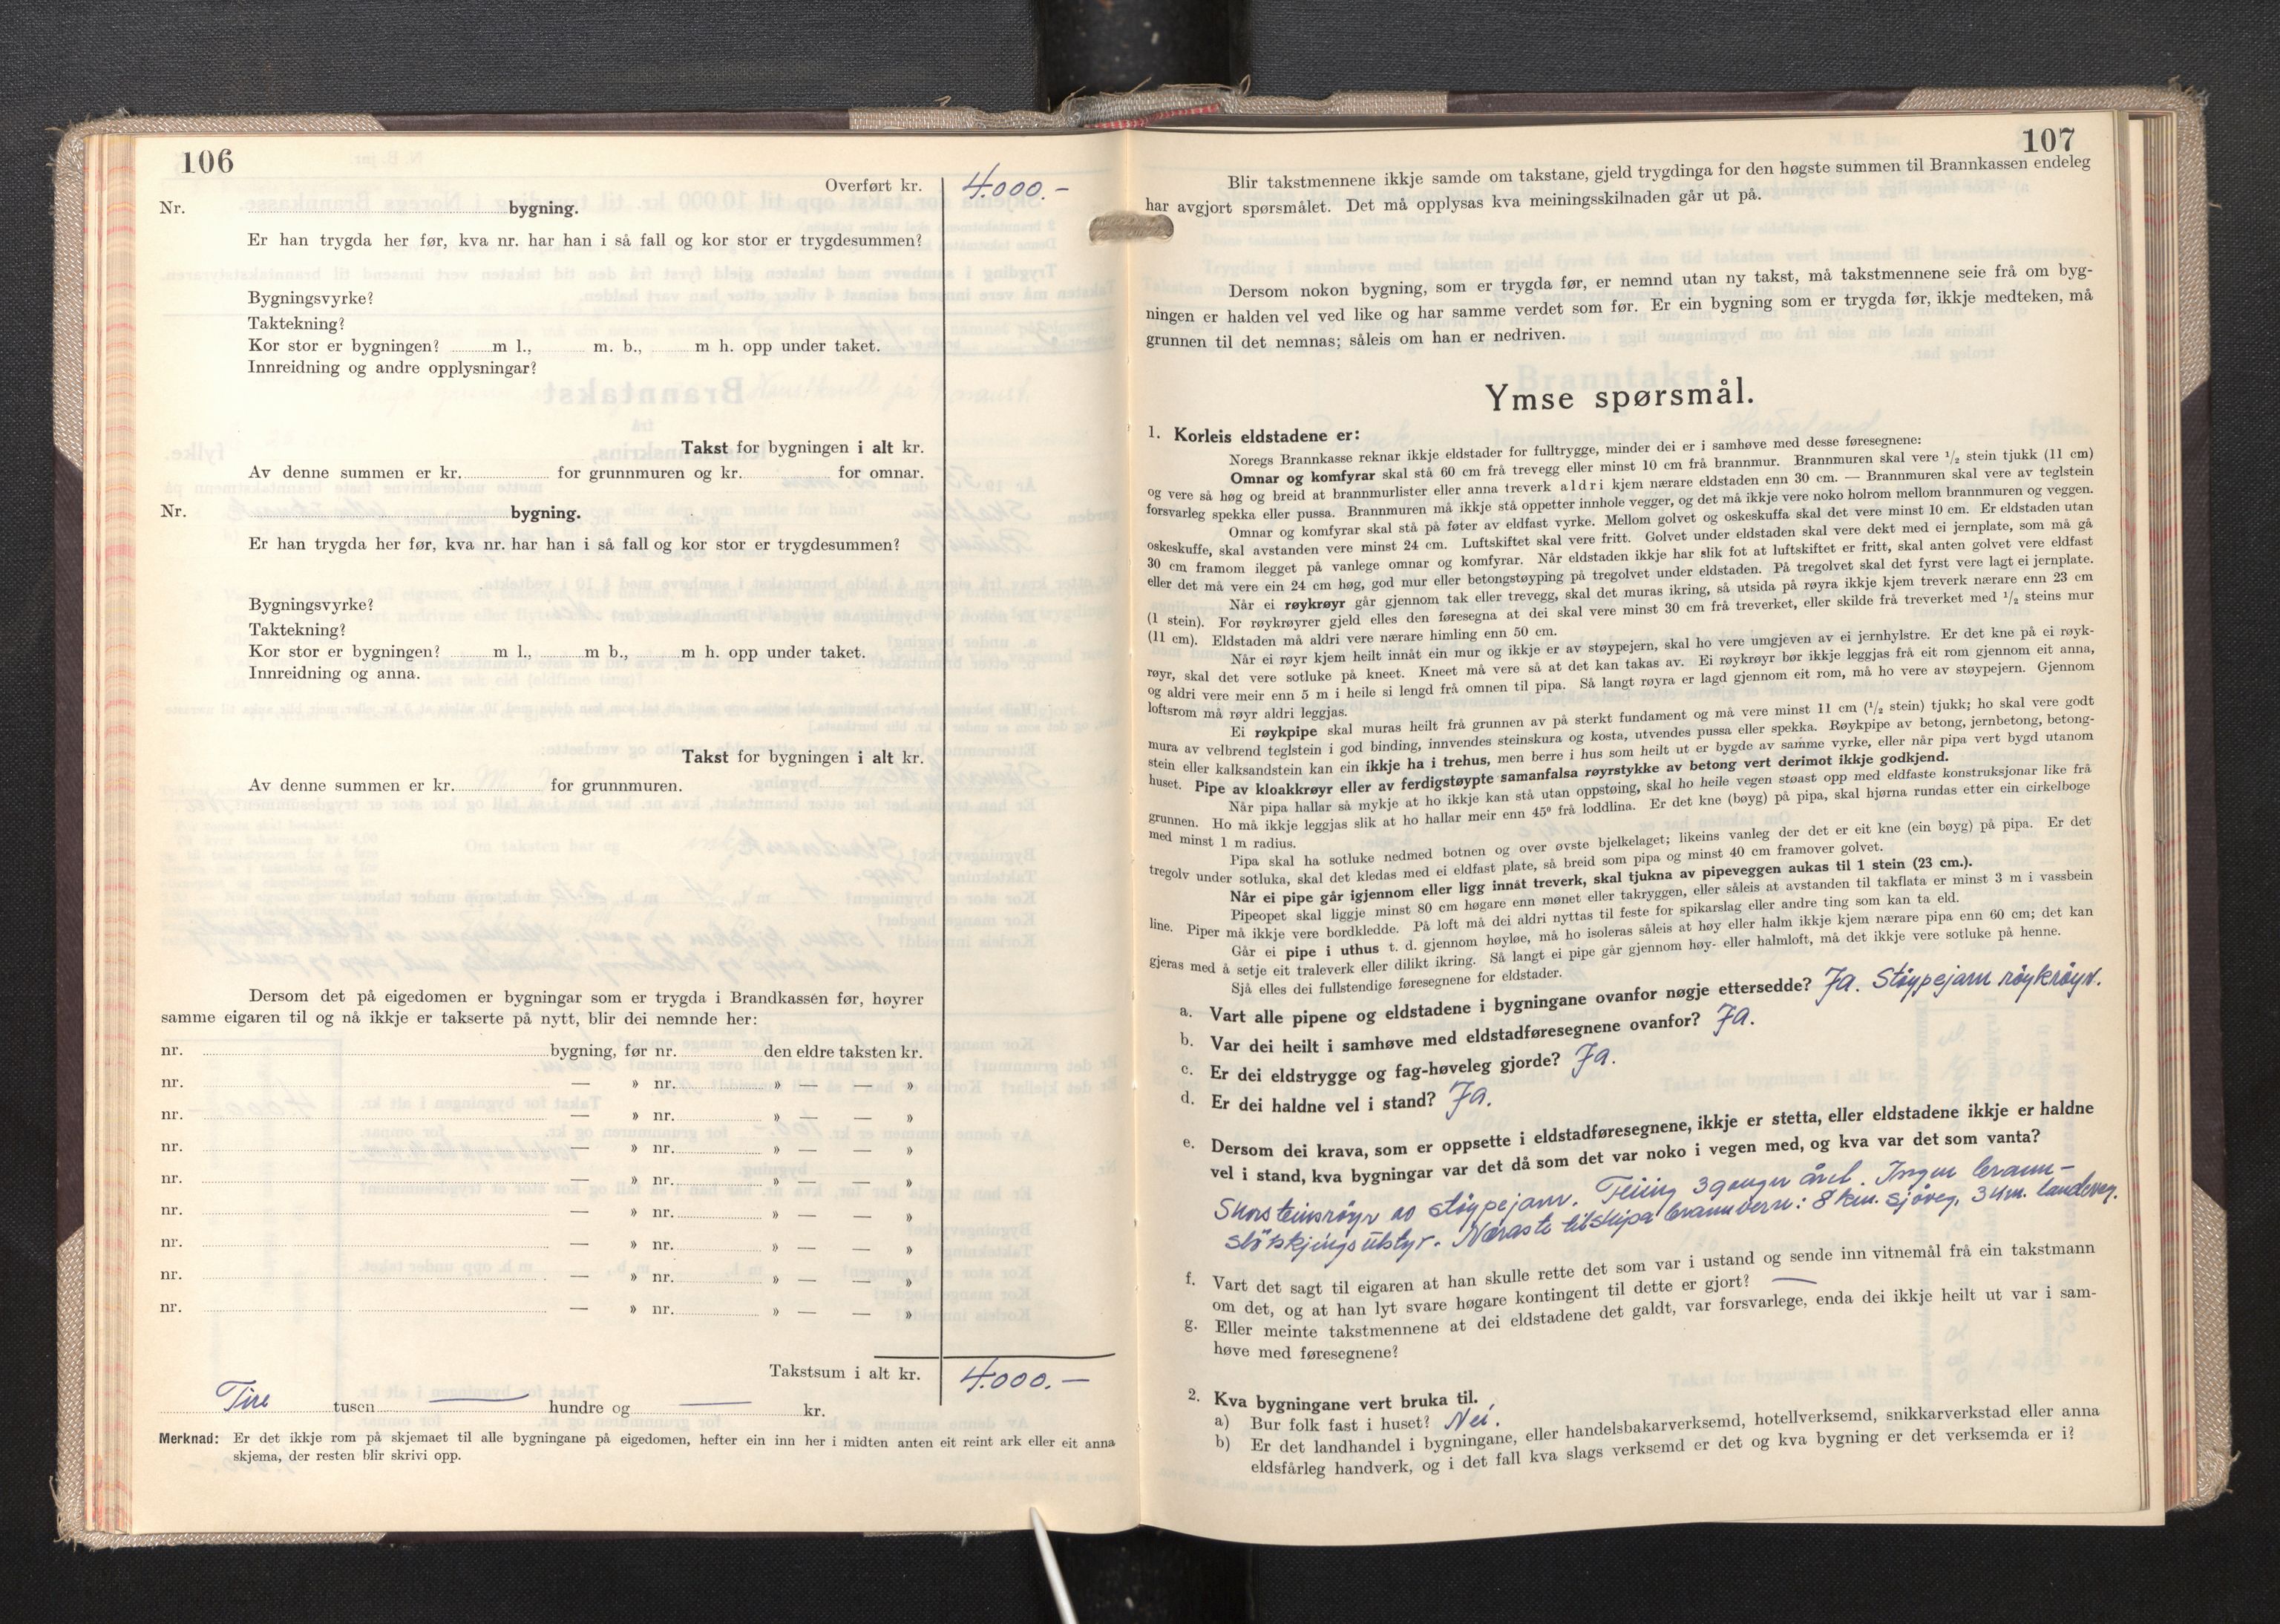 106
Overført kr. 4.000.-
Nr. bygning.
Er han trygda her før, kva nr. har han i så fall og kor stor er trygdesummen?
Bygningsvyrke?
Taktekning?
Kor stor er bygningen? m l., m. b., m h. opp under taket.
Innreidning og andre opplysningar?
Takst for bygningen i alt kr.
Av denne summen er kr. for grunnmuren og kr. for omnar.
Nr. bygning.
Er han trygda her før, kva nr. har han i så fall og kor stor er trygdesummen?
Bygningsvyrke?
Taktekning?
Kor stor er bygningen? m l., m b., m h. opp under taket.
Innreidning og anna.
Takst for bygningen i alt kr.
Av denne summen er kr. for grunnmuren.
Dersom det på eigedomen er bygningar som er trygda i Brandkassen før, høyrer
samme eigaren til og nå ikkje er takserte på nytt, blir dei nemnde her:
nr. bygning, før nr. den eldre taksten kr.
nr. — » nr. » — — »
nr. — » nr. » — — »
nr. — » nr. » — — »
nr. — » nr. » — — »
nr. — » nr. » — — »
nr. — » nr. » — — »
nr. — » nr. » — — »
nr. — » nr. » — — »
Takstsum i alt kr. 4.000.-
Tire tusen — hundre og — kr.
Merknad: Er det ikkje rom på skjemaet til alle bygningane på eigedomen, hefter ein inn her i midten anten eit reint ark eller eit anna
skjema, der resten blir skrivi opp.
107
Blir takstmennene ikkje samde om takstane, gjeld trygdinga for den høgste summen til Brannkassen endeleg
har avgjort spørsmålet. Det må opplysas kva meiningsskilnaden går ut på.
Dersom nokon bygning, som er trygda før, er nemnd utan ny takst, må takstmennene seie frå om byg-
ningen er halden vel ved like og har samme verdet som før. Er ein bygning som er trygda før, ikkje medteken, må
grunnen til det nemnas; såleis om han er nedriven.
Ymse spørsmål.
1. Korleis eldstadene er:
Noregs Brannkasse reknar ikkje eldstader for fulltrygge, minder dei er i samhøve med desse føresegnene:
Omnar og komfyrar skal stå 60 cm frå trevegg eller minst 10 cm frå brannmur. Brannmuren skal vere 1/2 stein tjukk (11 cm)
og vere så høg og breid at brannmurlister eller anna treverk aldri kjem nærare eldstaden enn 30 cm. — Brannmuren skal vere av teglstein
forsvarleg spekka eller pussa. Brannmuren må ikkje stå oppetter innhole vegger, og det må ikkje vere noko holrom mellom brannmuren og veggen.
Omnar og komfyrar skal stå på føter av eldfast vyrke. Mellom golvet og oskeskuffa skal det vere minst 10 cm. Er eldstaden utan
oskeskuffe, skal avstanden vere minst 24 cm. Luftskiftet skal vere fritt. Golvet under eldstaden skal vere dekt med ei jernplate, som må gå
30 cm framom ilegget på vanlege omnar og komfyrar. Når eldstaden ikkje har slik fot at luftskiftet er fritt, skal anten golvet vere eldfast
eller det må vere ein 24 cm høg, god mur eller betongstøyping på tregolvet under eldstaden. På tregolvet skal det fyrst vere lagt ei jernplate.
Når ei røykrøyr går gjennom tak eller trevegg, skal det muras ikring, så utsida på røyra ikkje kjem treverk nærare enn 23 cm
(1 stein). For røykrøyrer gjeld elles den føresegna at dei skal vere minst 30 cm frå treverket, eller skilde frå treverket med 1/2 steins mur
(11 cm). Eldstaden må aldri vere nærare himling enn 50 cm.
Når ei røyr kjem heilt innåt ein mur og ikkje er av støypejern, skal ho vere umgjeven av ei jernhylstre. Er det kne på ei røyk-
røyr, skal det vere sotluke på kneet. Kneet må vere så at det kan takas av. Ei røykrøyr bør ikkje leggjas frå eit rom gjennom eit anna,
og aldri vere meir enn 5 m i heile si lengd frå omnen til pipa. Så langt røyra er lagd gjennom eit rom, må ho vere av støypejern. Gjennom
loftsrom må røyr aldri leggjas.
Ei røykpipe skal muras heilt frå grunnen av på sterkt fundament og må vere minst 11 cm (1/2 stein) tjukk; ho skal vere godt
mura av velbrend teglstein i god binding, innvendes steinskura og kosta, utvendes pussa eller spekka. Røykpipe av betong, jernbetong, betong-
stein eller kalksandstein kan ein ikkje ha i trehus, men berre i hus som heilt ut er bygde av samme vyrke, eller når pipa vert bygd utanom
huset. Pipe av kloakkrøyr eller av ferdigstøypte samanfalsa røyrstykke av betong vert derimot ikkje godkjend.
Når pipa hallar så mykje at ho ikkje kan stå utan oppstøing, skal ho heile vegen støast opp med eldfaste konstruksjonar like frå
grunnen. Ho må ikkje leggjas slik at ho hallar meir enn 45° frå loddlina. Er det kne (bøyg) på pipa, skal hjørna rundas etter ein cirkelboge
med minst 1 m radius.
Pipa skal ha sotluke nedmed botnen og over øvste bjelkelaget; likeins vanleg der det er eit kne (ein bøyg) på pipa. Er det
tregolv under sotluka, skal det kledas med ei eldfast plate, så breid som pipa og minst 40 cm framover golvet.
Når ei pipe går igjennom eller ligg innåt treverk, skal tjukna av pipeveggen aukas til 1 stein (23 cm.).
Pipeopet skal liggje minst 80 cm høgare enn mønet eller takryggen, eller såleis at avstanden til takflata er minst 3 m i vassbein
line. Piper må ikkje vere bordkledde. På loft må dei aldri nyttas til feste for spikarslag eller andre ting som kan ta eld.
Går ei pipe i uthus t. d. gjennom høyløe, må ho isoleras såleis at høy eller halm ikkje kjem nærare pipa enn 60 cm; det kan
gjeras med å setje eit traleverk eller dilikt ikring. Så langt ei pipe går gjennom høy- eller halmloft, må det ikkje vere sotluke på henne.
Sjå elles dei fullstendige føresegnene for eldstader.
a. Vart alle pipene og eldstadene i bygningane ovanfor nøgje ettersedde? Ja. Støypejarn røykrøyr.
b. Var dei heilt i samhøve med eldstadføresegnene ovanfor? Ja.
c. Er dei eldstrygge og fag-høveleg gjorde? Ja.
d. Er dei haldne vel i stand? Ja.
e. Dersom dei krava, som er oppsette i eldstadføresegnene, ikkje er stetta, eller eldstadene ikkje er haldne
vel i stand, kva bygningar var det då som det var noko i vegen med, og kva var det som vanta?
Skorsteinsrøyr av støypejarn. Feiing 3 gonger året. Ingen brann-
sløkkjingsutstyr. Næraste tilskipa brannvern: 8 km. sjøveg, 3 km. landeveg.
f. Vart det sagt til eigaren at han skulle rette det som var i ustand og sende inn vitnemål frå ein takstmann
om det, og at han lyt svare høgare kontingent til dette er gjort? —
g. Eller meinte takstmennene at dei eldstadene det galdt, var forsvarlege, enda dei ikkje heilt ut var i sam-
høve med føresegnene?
2. Kva bygningane vert bruka til.
a) Bur folk fast i huset? Nei.
b) Er det landhandel i bygningane, eller handelsbakarverksemd, hotellverksemd, snikkarverkstad eller anna
eldsfårleg handverk, og i det fall kva slags verksemd er det og kva bygning er det verksemda er i?